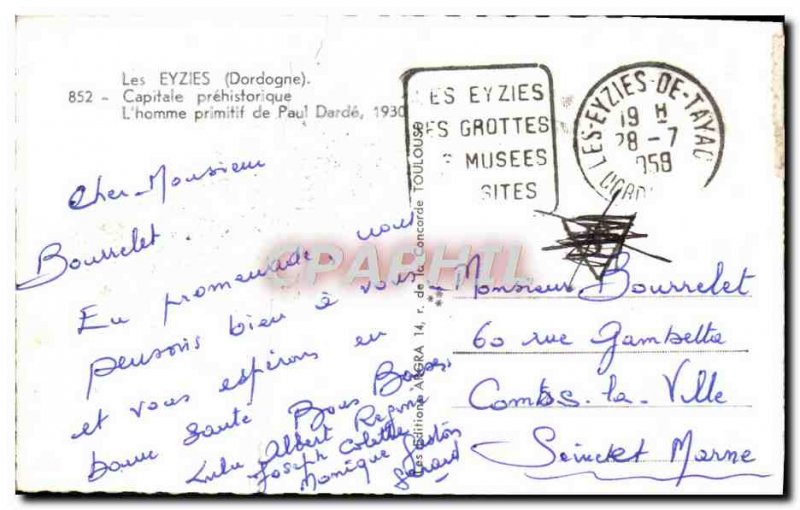 Les EYZIES (Dordogne).
852 - Capitale préhistorique
L'homme primitif de Paul Dardé, 1930
LES EYZIES
SES GROTTES
MUSEES
SITES
LES-EYZIES-DE-TAYAC
19 H
28-7
1958
DORD
Cher Monsieur
Bourrelet.
En promenade, nous
pensons bien à vous
et vous espérons en
bonne santé Bons Baisers
Lulu Albert Regine
Joseph Colette
Monique Gaston
Gérard
Les Editions ARGRA 14, r. de la Concorde TOULOUSE
CPAPHIL
Monsieur Bourrelet
60 rue Gambetta
Combs-la-Ville
Seine et Marne